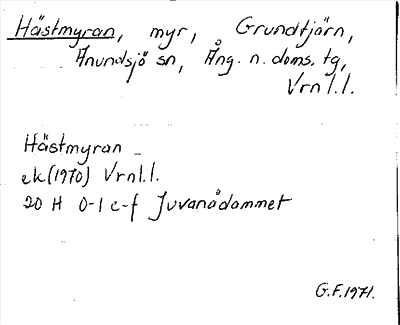 Hästmyran, myr, Grundtjärn,
Anundsjö sn, Ång. n. doms. tg,
Vrnl.l.
Hästmyran
ek(1970) Vrnl.l.
20 H 0-1 e-f Juvanådammet
G.F.1971.